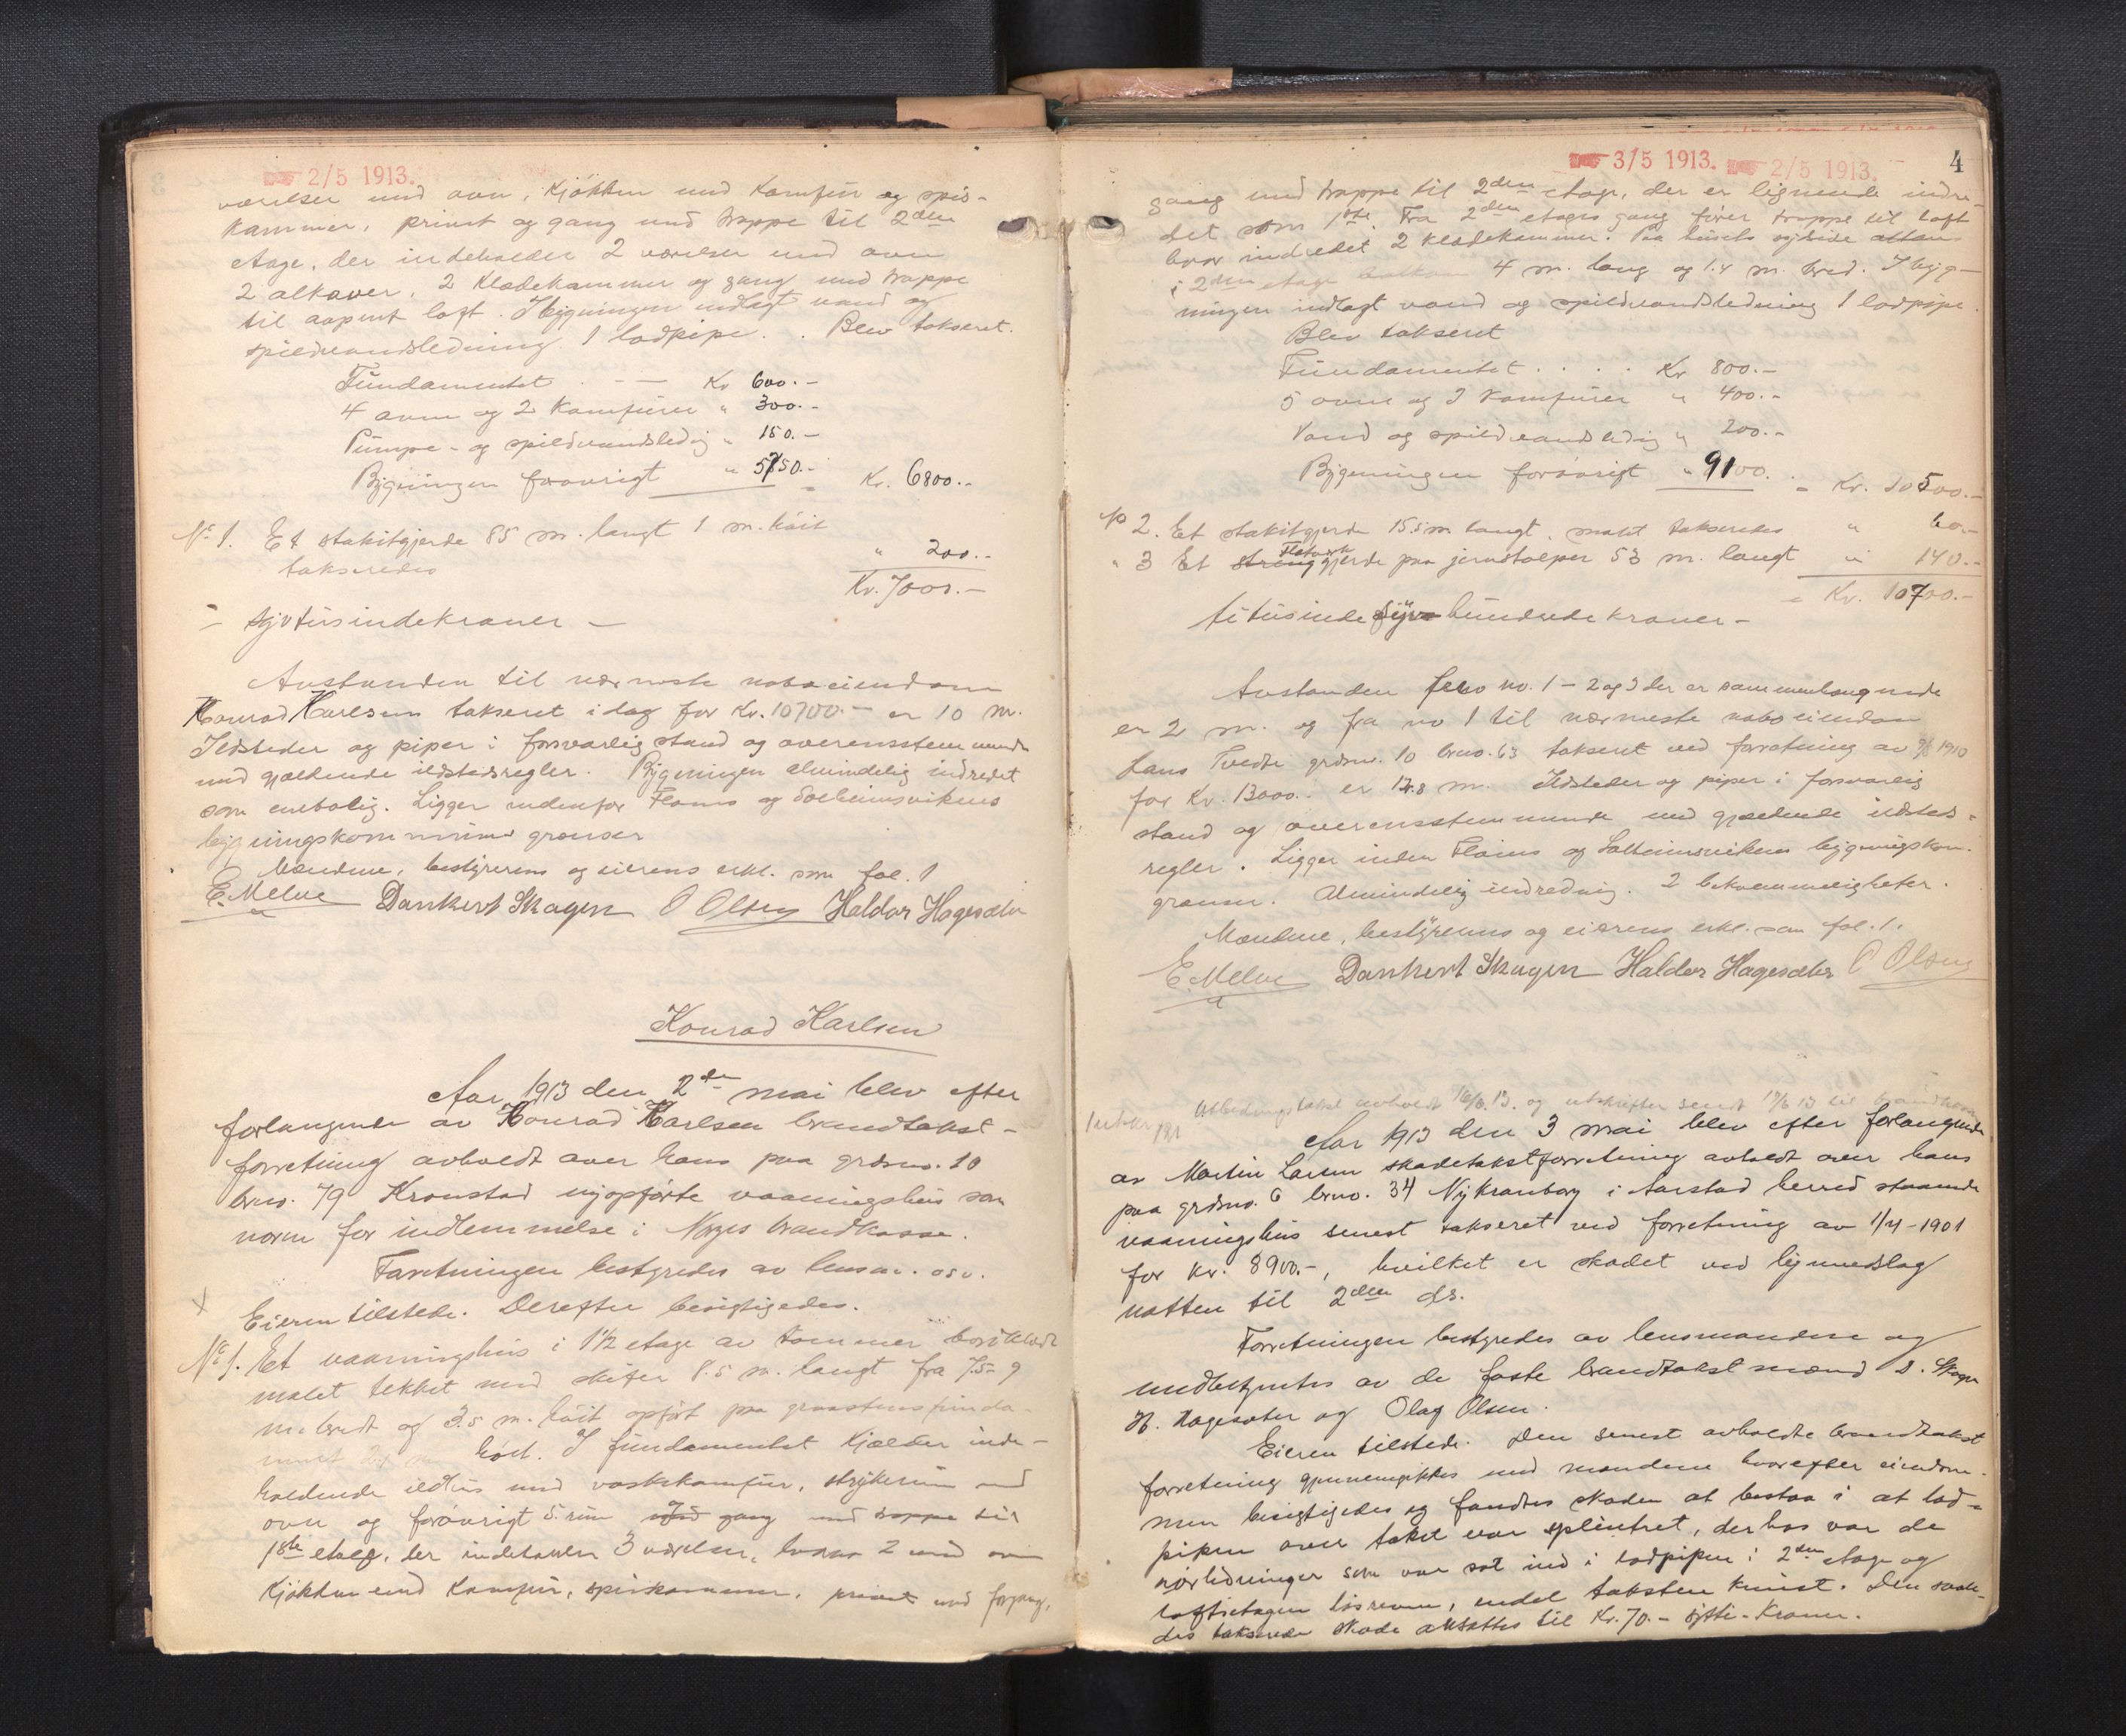 2/5 1913.
værelser med ovn, Kjökken med Komfur og spis-
kammer, privet og gang med trappe til 2den
etage, der indeholder 2 værelser med ovn
2 alkover, 2 Klædekammer og gang med trappe
til aapent loft. I bygningen indlagt vand og
spildvandsledning. 1 lodpipe. Blev takseret.
Fundamentet Kr 600.-
4 ovne og 2 Komfurer " 300.-
Pumpe- og spildvandsledig " 150.-
Bygningen forøvrigt " 5750.- Kr. 6800.-
No 1. Et stakitgjerde 85 m. langt 1 m. høit
takseredes " 200.-
Kr. 7000.-
- syvtusindekroner -
Avstanden til nærmeste naboeiendom
Konrad Karlsens takseret idag for Kr. 10700.- er 10 m.
Ildsteder og piper i forsvarlig stand og overensstemmende
med gjældende ildstedsregler. Bygningen almindelig indredet
som enebolig. Ligger indenfor Floens og Solheimsvikens
bygningskommunes grænser
Mændene, bestyrerens og eierens erkl. som fol. 1
E. Melve Dankert Skagen O Olsen Haldor Hagesæter
Konrad Karlsen
Aar 1913 den 2den mai blev efter
forlangende av Konrad Karlsen brandtakst-
forretning avholdt over hans paa grdsno. 10
brno. 79 Kronstad nyopførte vaaningshus som
norm for indlemmelse i Norges brandkasse.
Forretningen bestyredes av lensm. osv.
X Eieren tilstede. Derefter besigtigedes.
No 1. Et vaaningshus i 1 1/2 etage av tømmer bordklædt
malet tekket med skifer 8.5 m. langt fra 7.5-9
m. bredt og 3.5 m. høit opført paa graastensfunda-
ment høit. I fundamentet Kjælder inde-
holdende ildhus med vaskekomfur, strykerum med
ovn og forøvrigt 5 rum og gang med trappe til
1ste etage, der indeholder 3 værelser, hvorav 2 med ovn
Kjökken med Komfur, spiskammer, privet med forgang,
3/5 1913. 2/5 1913. 4
gang med trappe til 2den etage, der er lignende indre-
det som 1ste. Fra 2den etages gang fører trappe til loft
hvor indredet 2 Klædekammer. Paa husets sydside altan
i 2den etage balkon 4 m. lang og 1.4 m. bred. I byg-
ningen indlagt vand og spildvandsledning 1 lodpipe.
Blev takseret
Fundamentet . . . . Kr 800.-
5 ovne og 3 Komfurer " 400.-
Vand og spildvandsledig " 200.-
Bygningen forøvrigt " 9100. - Kr. 10500.-
No 2. Et stakitgjerde 15.5 m langt, malt takseredes " 60.-
" 3 Et streng Fletverk gjerde paa jernstolper 53 m. langt " 140.-
- Kr. 10700.-
titusindesyvhundrede kroner -
Avstanden fra no. 1 - 2 og 3 der er sammenhængende
er 2 m. og fra no 1 til nærmeste naboeiendom
Hans Tvedte grdsno. 10 brno. 63 takseret ved forretning av 9/6 1910
for Kr. 13000.- er 17.8 m. Ildsteder og piper i forsvarlig
stand og overensstemmende med gjældende ildsteds-
regler. Ligger inden Floens og Solheimsvikens bygningskom.
grænser. Almindelig indredning. 2 bekvemmeligheter.
Mændene, bestyrerens og eierens erkl. som fol. 1.
E. Melve Dankert Skagen Haldor Hagesæter O Olsen
Utbedringstakst avholdt 16/6.13. og utskrifter sendt 17/6 13 til brandkassen
Aar 1913 den 3 mai blev efter forlangende
av Martin Larsen skadetakstforretning avholdt over hans
paa grdsno. 6 brno. 34 Nykronborg i Aarstad herred staaende
vaaningshus senest takseret ved forretning av 1/4-1901
for Kr. 8900.-, hvilket er skadet ved lynnedslag
natten til 2den ds.
Forretningen bestyredes av lensmanden og
medbetjentes av de faste brandtakstmænd D. Skagen
H. Hagesæter og Olaf Olsen.
Eieren tilstede. Den senest avholdte brandtakst
forretning gjennemgikkes med mændene hvorefter eiendom-
men besigtigedes og fandtes skaden at bestaa i at lod-
pipen over taket var splintret, derhos var de
rørledninger som var sat ind i lodpipen i 2den etage og
loftsetagen løsrevne, endel taksten knust. Den saale-
des takserede skade ansattes til Kr. 70.- sytti-Kroner.